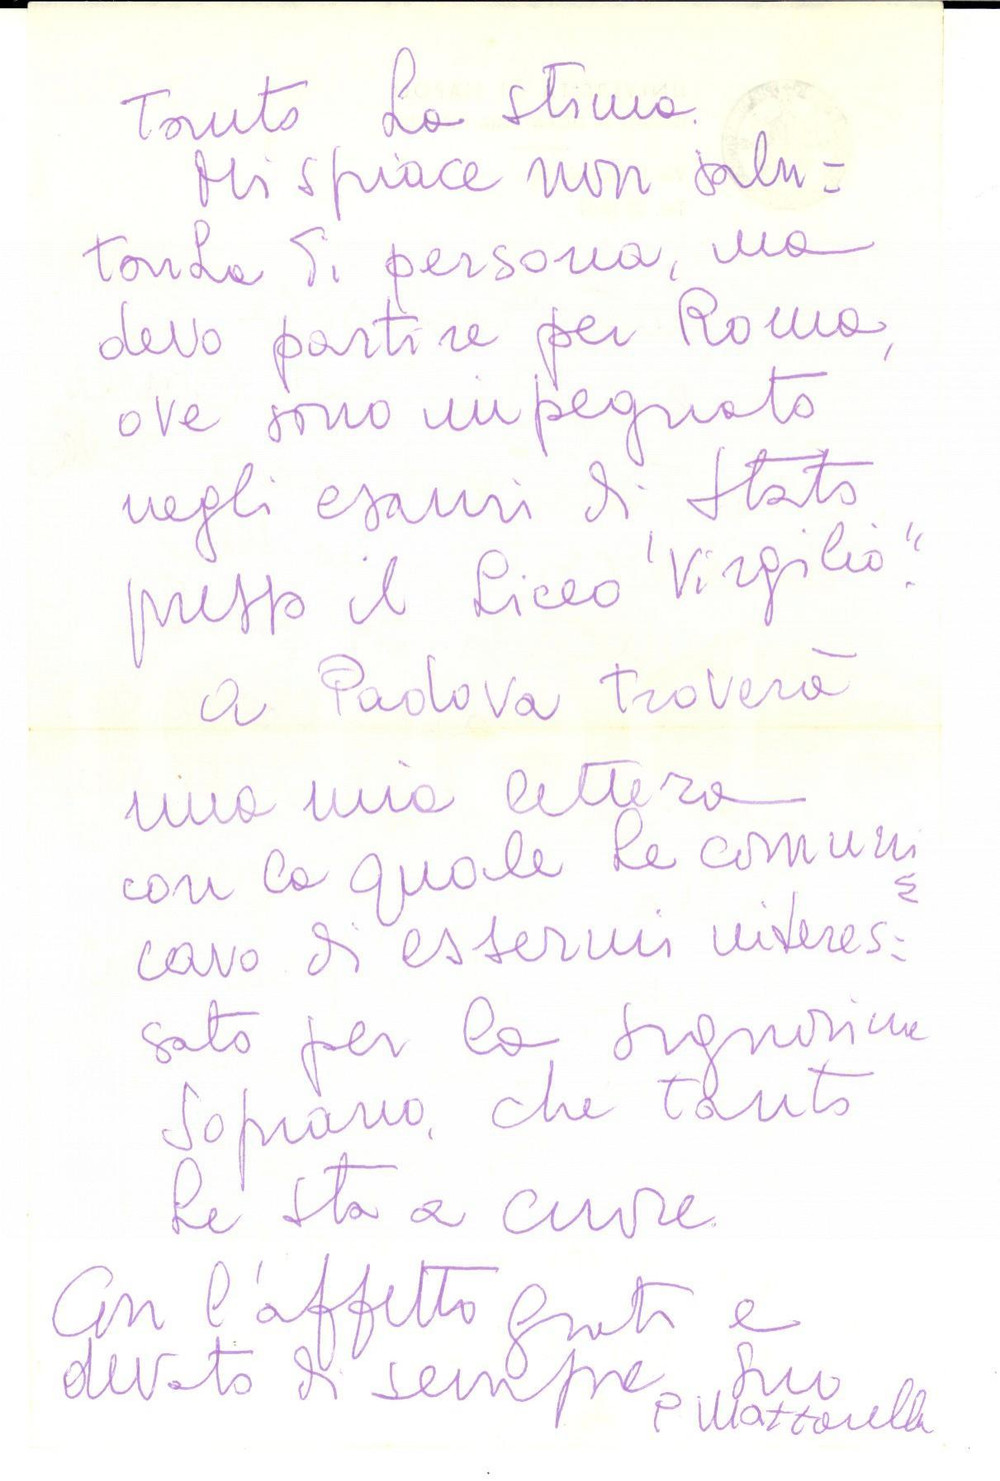 tanto La stima.
Mi spiace non salu=
tarLa di persona, ma
devo partire per Roma,
ove sono impegnato
negli esami di Stato
presso il Liceo "Virgilio".
A Padova troverà
una mia lettera
con la quale Le comuni=
cavo di essermi interes=
sato per la signorina
Soprano, che tanto
Le sta a cuore.
Con l'affetto grato e
devoto di sempre, Suo
P Mattarella